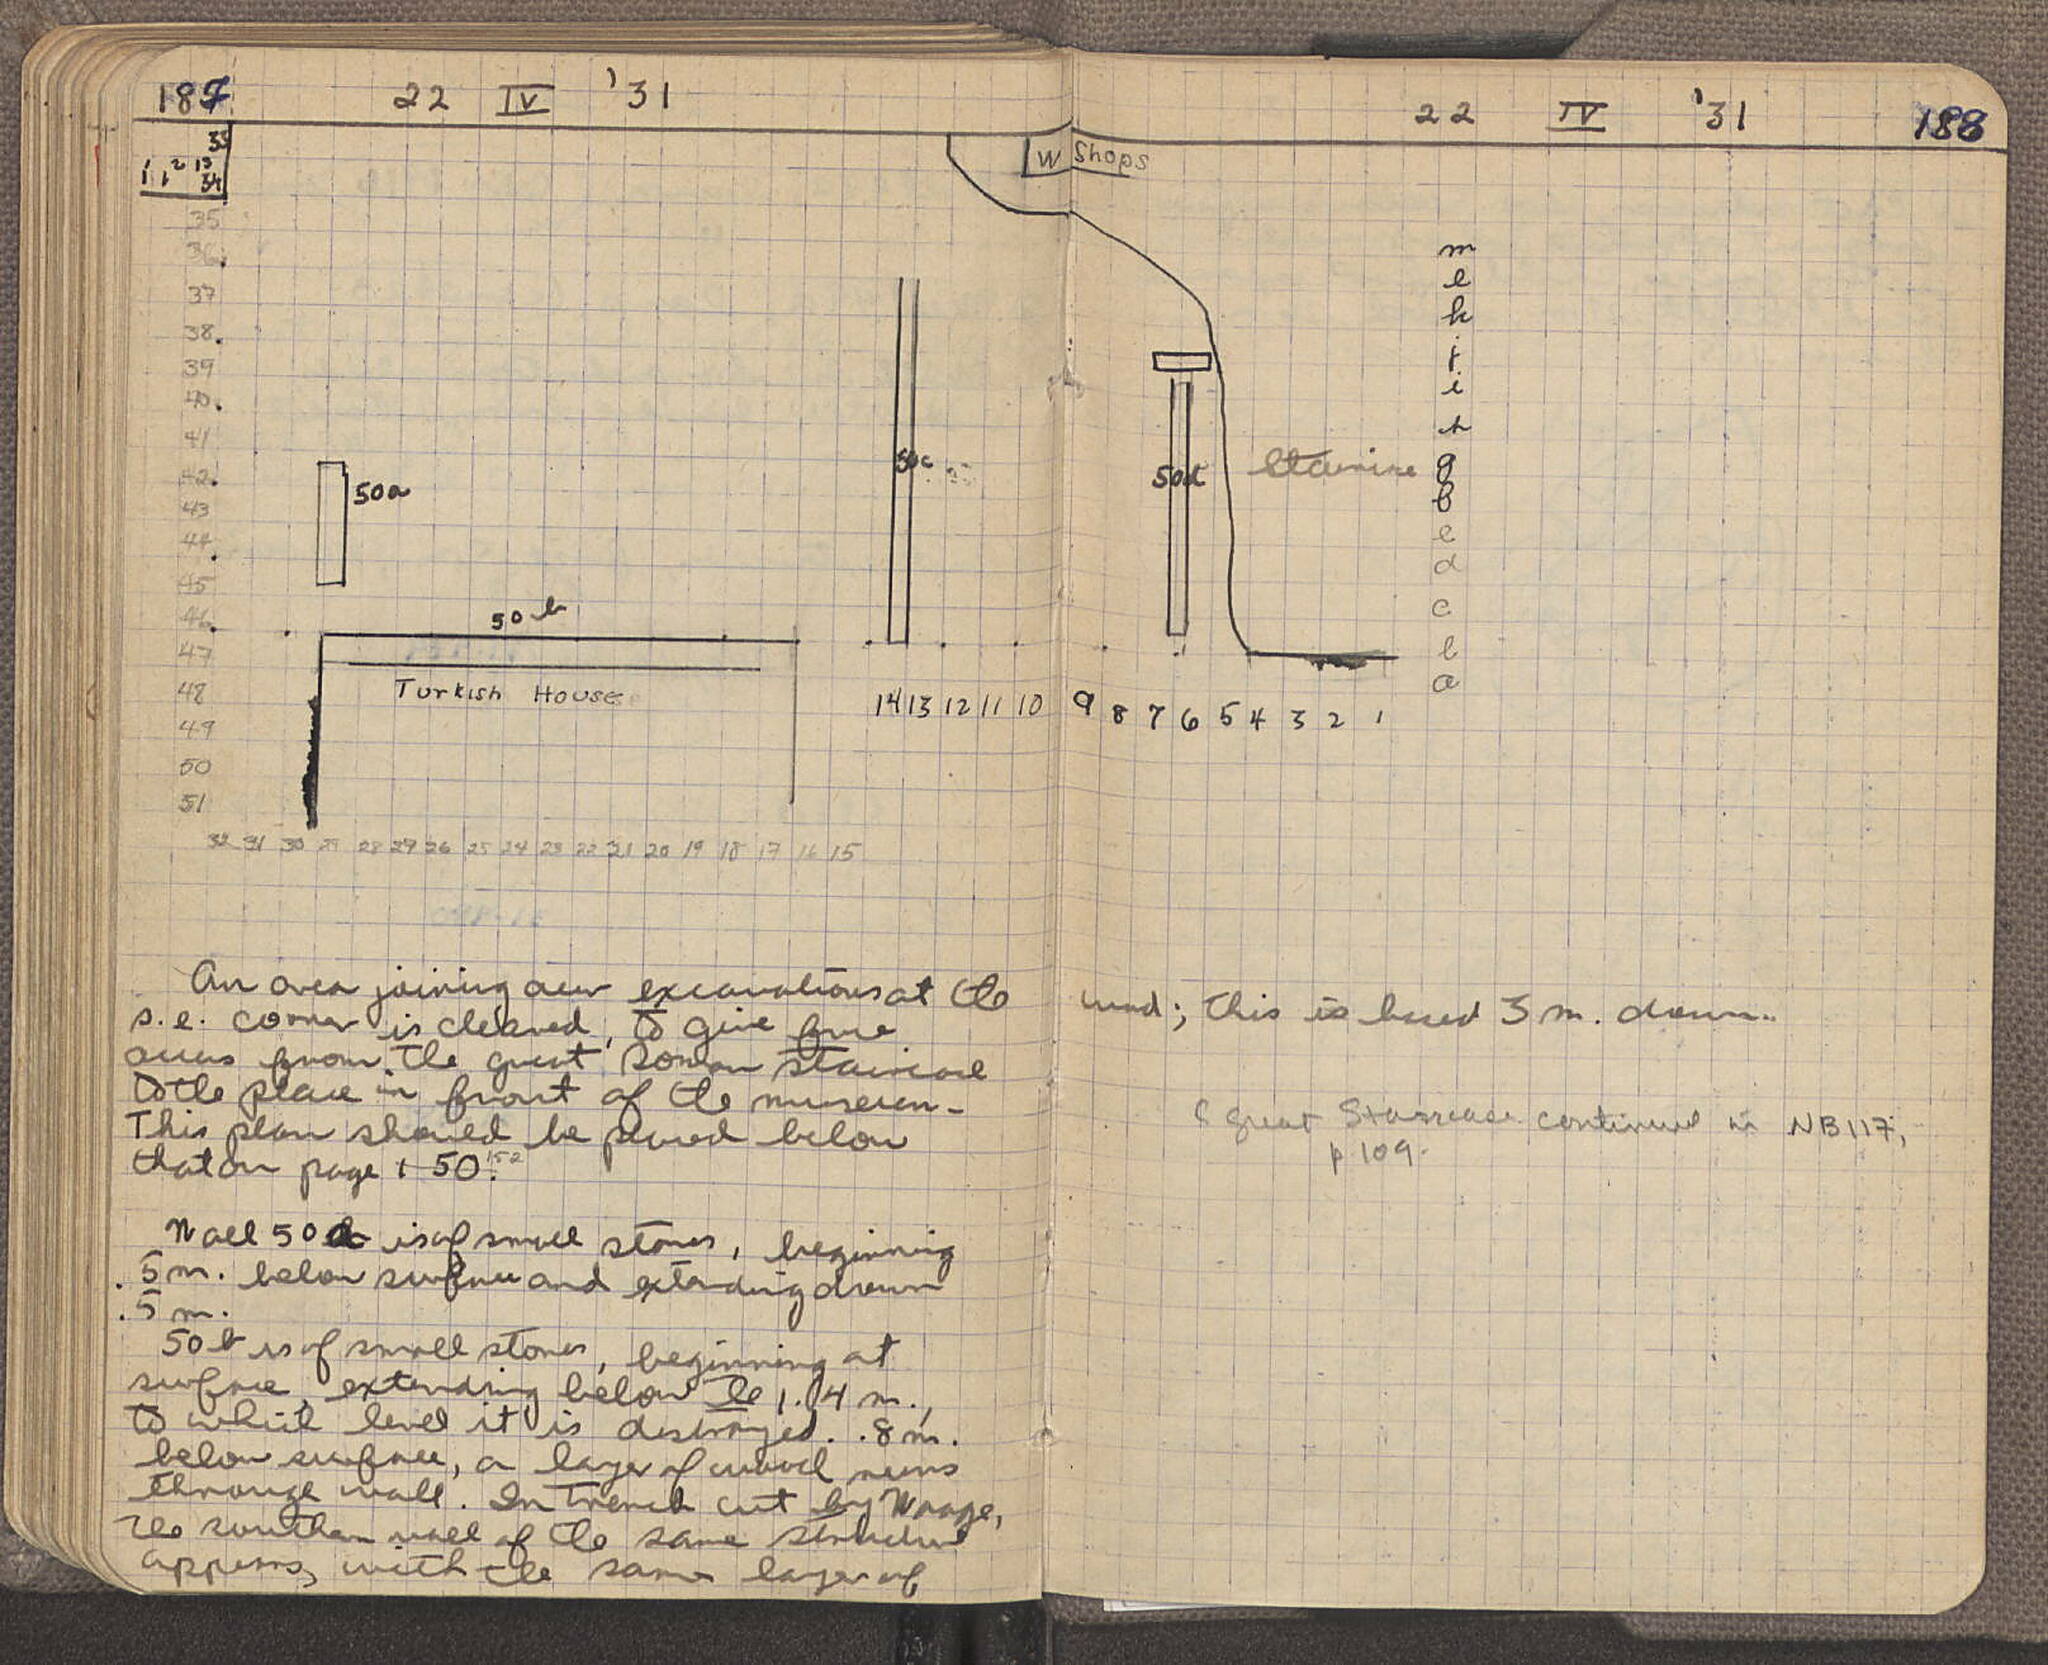 187 22 IV '31
33
1 1 2 13
34
35
36
37
38
39
40
41
42
43
44
45
46
47
48
49
50
51
50a
50b
50c
Turkish House
14 13 12 11 10
32 31 30 29 28 29 26 25 24 23 22 21 20 19 18 17 16 15
An area joining our excavations at the
s.e. corner is cleared, to give free
access from the great Roman staircase
to the place in front of the museum.
This plan should be placed below
that on page 150. 152
Wall 50a is of small stones, beginning
.5 m. below surface and extending down
.5 m.
50b is of small stones, beginning at
surface, extending below to 1.4 m.,
to which level it is destroyed. .8 m.
below surface, a layer of wood runs
through wall. In trench cut by Waage,
the southern wall of the same structure
appears, with the same layer of
22 IV '31 188
W Shops
m
l
k
j
i
h
50d g
f
e
d
c
b
a
9 8 7 6 5 4 3 2 1
wood; this is based 3 m. down.
Great Staircase continued in NB 117,
p. 109.